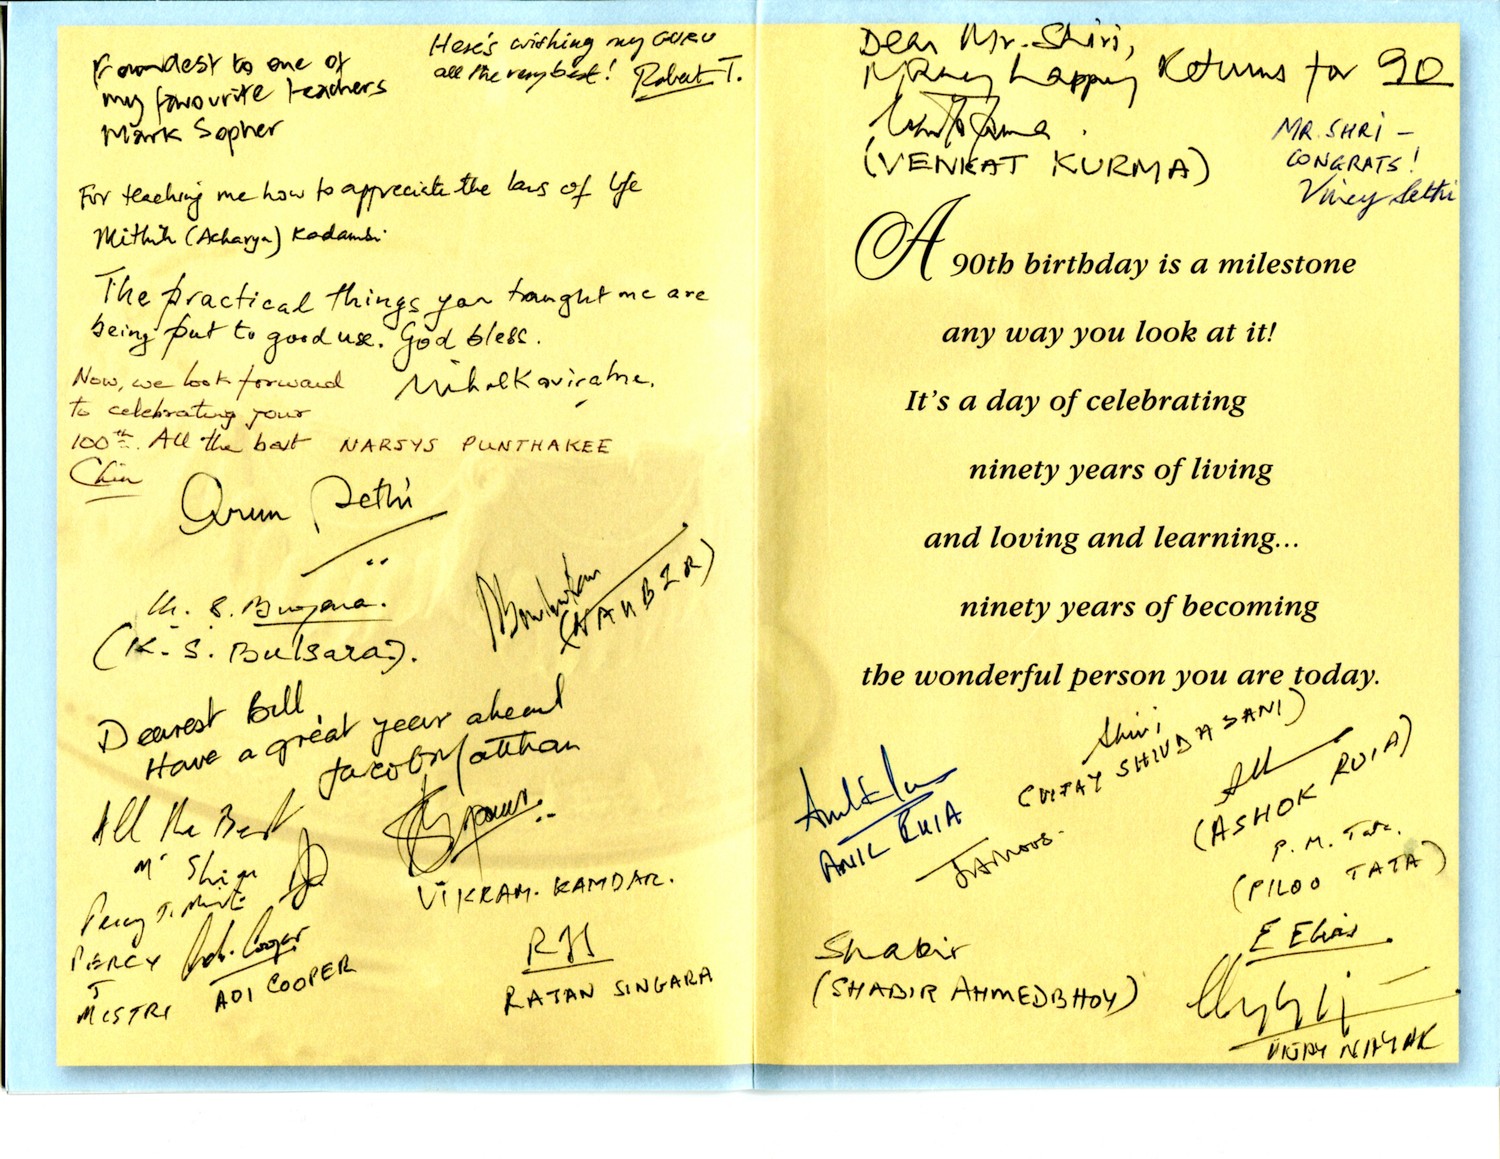 Fondest to one of
my favourite teachers
Mark Sopher
Here's wishing my GURU
all the very best! Robert T.
For teaching me how to appreciate the laws of life
Mithih (Acharya) Kadambi
The practical things you taught me are
being put to good use. God bless.
Nihal Kaviratne.
Now, we look forward
to celebrating your
100th. All the best NARSYS PUNTHAKEE
Arun Sethi
K. S. Bulsara.
(K. S. Bulsara).
Dearest Bill
Have a great year ahead
Jacob Matthan
All the Best
Mr Shiri
Percy J. Mistri
PERCY
J
MISTRI
Adi Cooper
ADI COOPER
VIKRAM. KAMDAR.
RATAN SINGARA
Dear Mr. Shiri,
Many happy Returns for 90
(VENKAT KURMA)
MR. SHRI –
CONGRATS!
Viney Sethi
A 90th birthday is a milestone
any way you look at it!
It's a day of celebrating
ninety years of living
and loving and learning...
ninety years of becoming
the wonderful person you are today.
Shivi
(VIJAY SHIVDASANI)
ANIL RUIA
(ASHOK RUIA)
P. M. Tata.
(PILOO TATA)
Shabir
(SHABIR AHMEDBHOY)
E Elias
VIJAY NAYAK